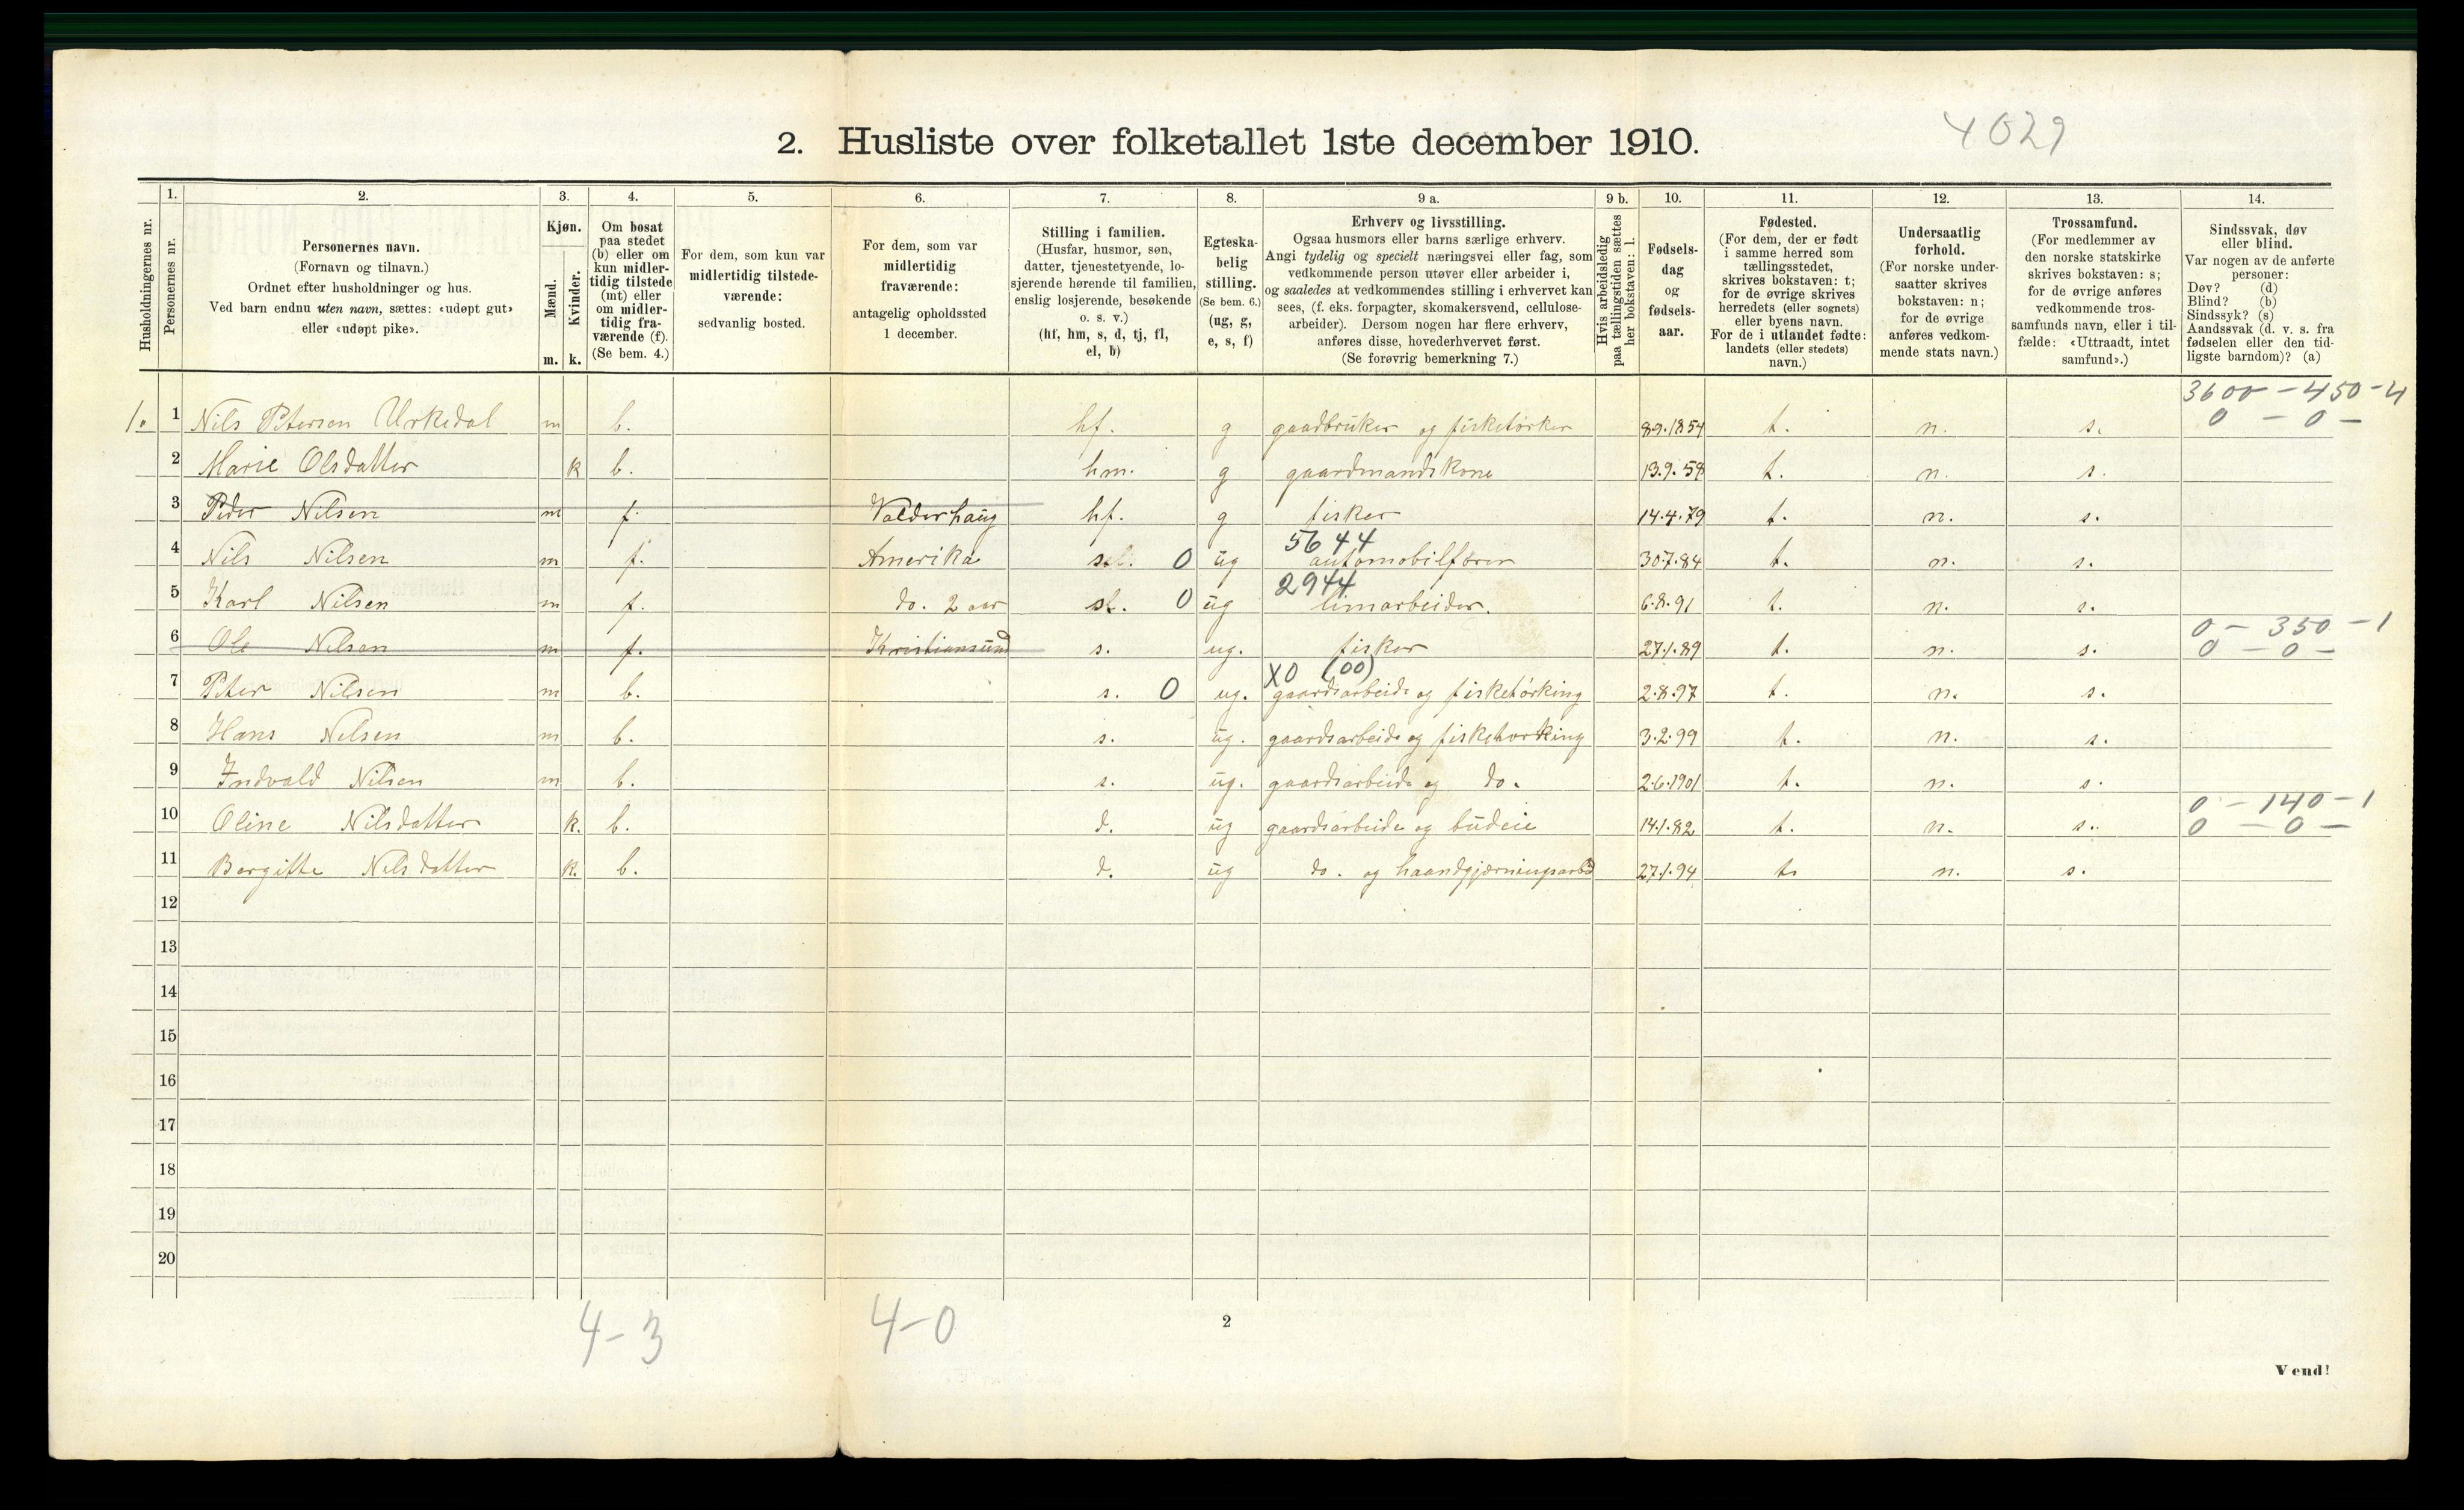 4029
2. Husliste over folketallet 1ste december 1910.
Husholdningernes nr.
1. Personernes nr.
2. Personernes navn.
(Fornavn og tilnavn.)
Ordnet efter husholdninger og hus.
Ved barn endnu uten navn, sættes: «udøpt gut»
eller «udøpt pike».
3. Kjøn.
Mænd. m.
Kvinder. k.
4. Om bosat
paa stedet
(b) eller om
kun midler-
tidig tilstede
(mt) eller
om midler-
tidig fra-
værende (f).
(Se bem. 4.)
5. For dem, som kun var
midlertidig tilstede-
værende:
sedvanlig bosted.
6. For dem, som var
midlertidig
fraværende:
antagelig opholdssted
1 december.
7. Stilling i familien.
(Husfar, husmor, søn,
datter, tjenestetyende, lo-
sjerende hørende til familien,
enslig losjerende, besøkende
o. s. v.)
(hf, hm, s, d, tj, fl,
el, b)
8. Egteska-
belig
stilling.
(Se bem. 6.)
(ug, g,
e, s, f)
9 a. Erhverv og livsstilling.
Ogsaa husmors eller barns særlige erhverv.
Angi tydelig og specielt næringsvei eller fag, som
vedkommende person utøver eller arbeider i,
og saaledes at vedkommendes stilling i erhvervet kan
sees, (f. eks. forpagter, skomakersvend, cellulose-
arbeider). Dersom nogen har flere erhverv,
anføres disse, hovederhvervet først.
(Se forøvrig bemerkning 7.)
9 b. Hvis arbeidsledig
paa tællingstiden sættes
her bokstaven: l.
10. Fødsels-
dag
og
fødsels-
aar.
11. Fødested.
(For dem, der er født
i samme herred som
tællingsstedet,
skrives bokstaven: t;
for de øvrige skrives
herredets (eller sognets)
eller byens navn.
For de i utlandet fødte:
landets (eller stedets)
navn.)
12. Undersaatlig
forhold.
(For norske under-
saatter skrives
bokstaven: n;
for de øvrige
anføres vedkom-
mende stats navn.)
13. Trossamfund.
(For medlemmer av
den norske statskirke
skrives bokstaven: s;
for de øvrige anføres
vedkommende tros-
samfunds navn, eller i til-
fælde: «Uttraadt, intet
samfund».)
14. Sindssvak, døv
eller blind.
Var nogen av de anførte
personer:
Døv? (d)
Blind? (b)
Sindssyk? (s)
Aandssvak (d. v. s. fra
fødselen eller den tid-
ligste barndom)? (a)
3600 - 450 - 4
1. 1 Nils Petersen Urkedal m b. hf. g gaardbruker og fisketørker 8.9.1854 t. n. s. 0 - 0 -
2 Marie Olsdatter k b. hm. g gaardmandskone 13.9.58 t. n. s.
3 Peder Nilsen m f. Valderhaug hf. g fisker 14.4.79 t. n. s.
5644
4 Nils Nilsen m f. Amerika 0 ug automobilfører 30.7.84 t. n. s.
2944
5 Karl Nilsen m f. do. 2 aar 0 ug limarbeider. 6.8.91 t. n. s.
0 - 350 - 1
6 Ole Nilsen m f. Kristiansund s. ug. fisker 27.1.89 t. n. s. 0 - 0 -
X0 (00)
7 Peter Nilsen m b. s. 0 ug. gaardsarbeide og fisketørking 2.8.97 t. n. s.
8 Hans Nilsen m b. s. ug. gaardsarbeide og fisketørking 3.2.99 t. n. s.
9 Indvald Nilsen m b. s. ug. gaardsarbeide og do. 2.6.1901 t. n. s.
0 - 140 - 1
10 Oline Nilsdatter k. b. d. ug gaardsarbeide og budeie 14.1.82 t. n. s. 0 - 0 -
11 Bergitte Nilsdatter k. b. d. ug do. og haandgjærningsarbd 27.1.94 t. n. s.
12
13
14
15
16
17
18
19
20
4-3 4-0
2
Vend!